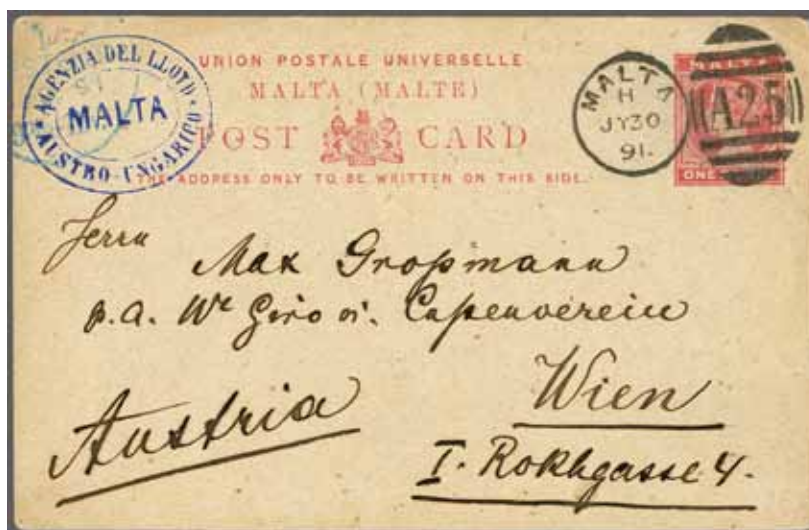 AGENZIA DEL LLOYD
MALTA
AUSTRO-UNGARICO
UNION POSTALE UNIVERSELLE
MALTA (MALTE)
POST CARD
THE ADDRESS ONLY TO BE WRITTEN ON THIS SIDE.
MALTA
H
JY 30
91.
A25
ONE
Herrn
Max Großmann
p.a. Wr Giro u. Cassenverein
Wien
Austria
I. Rokhgasse 4.